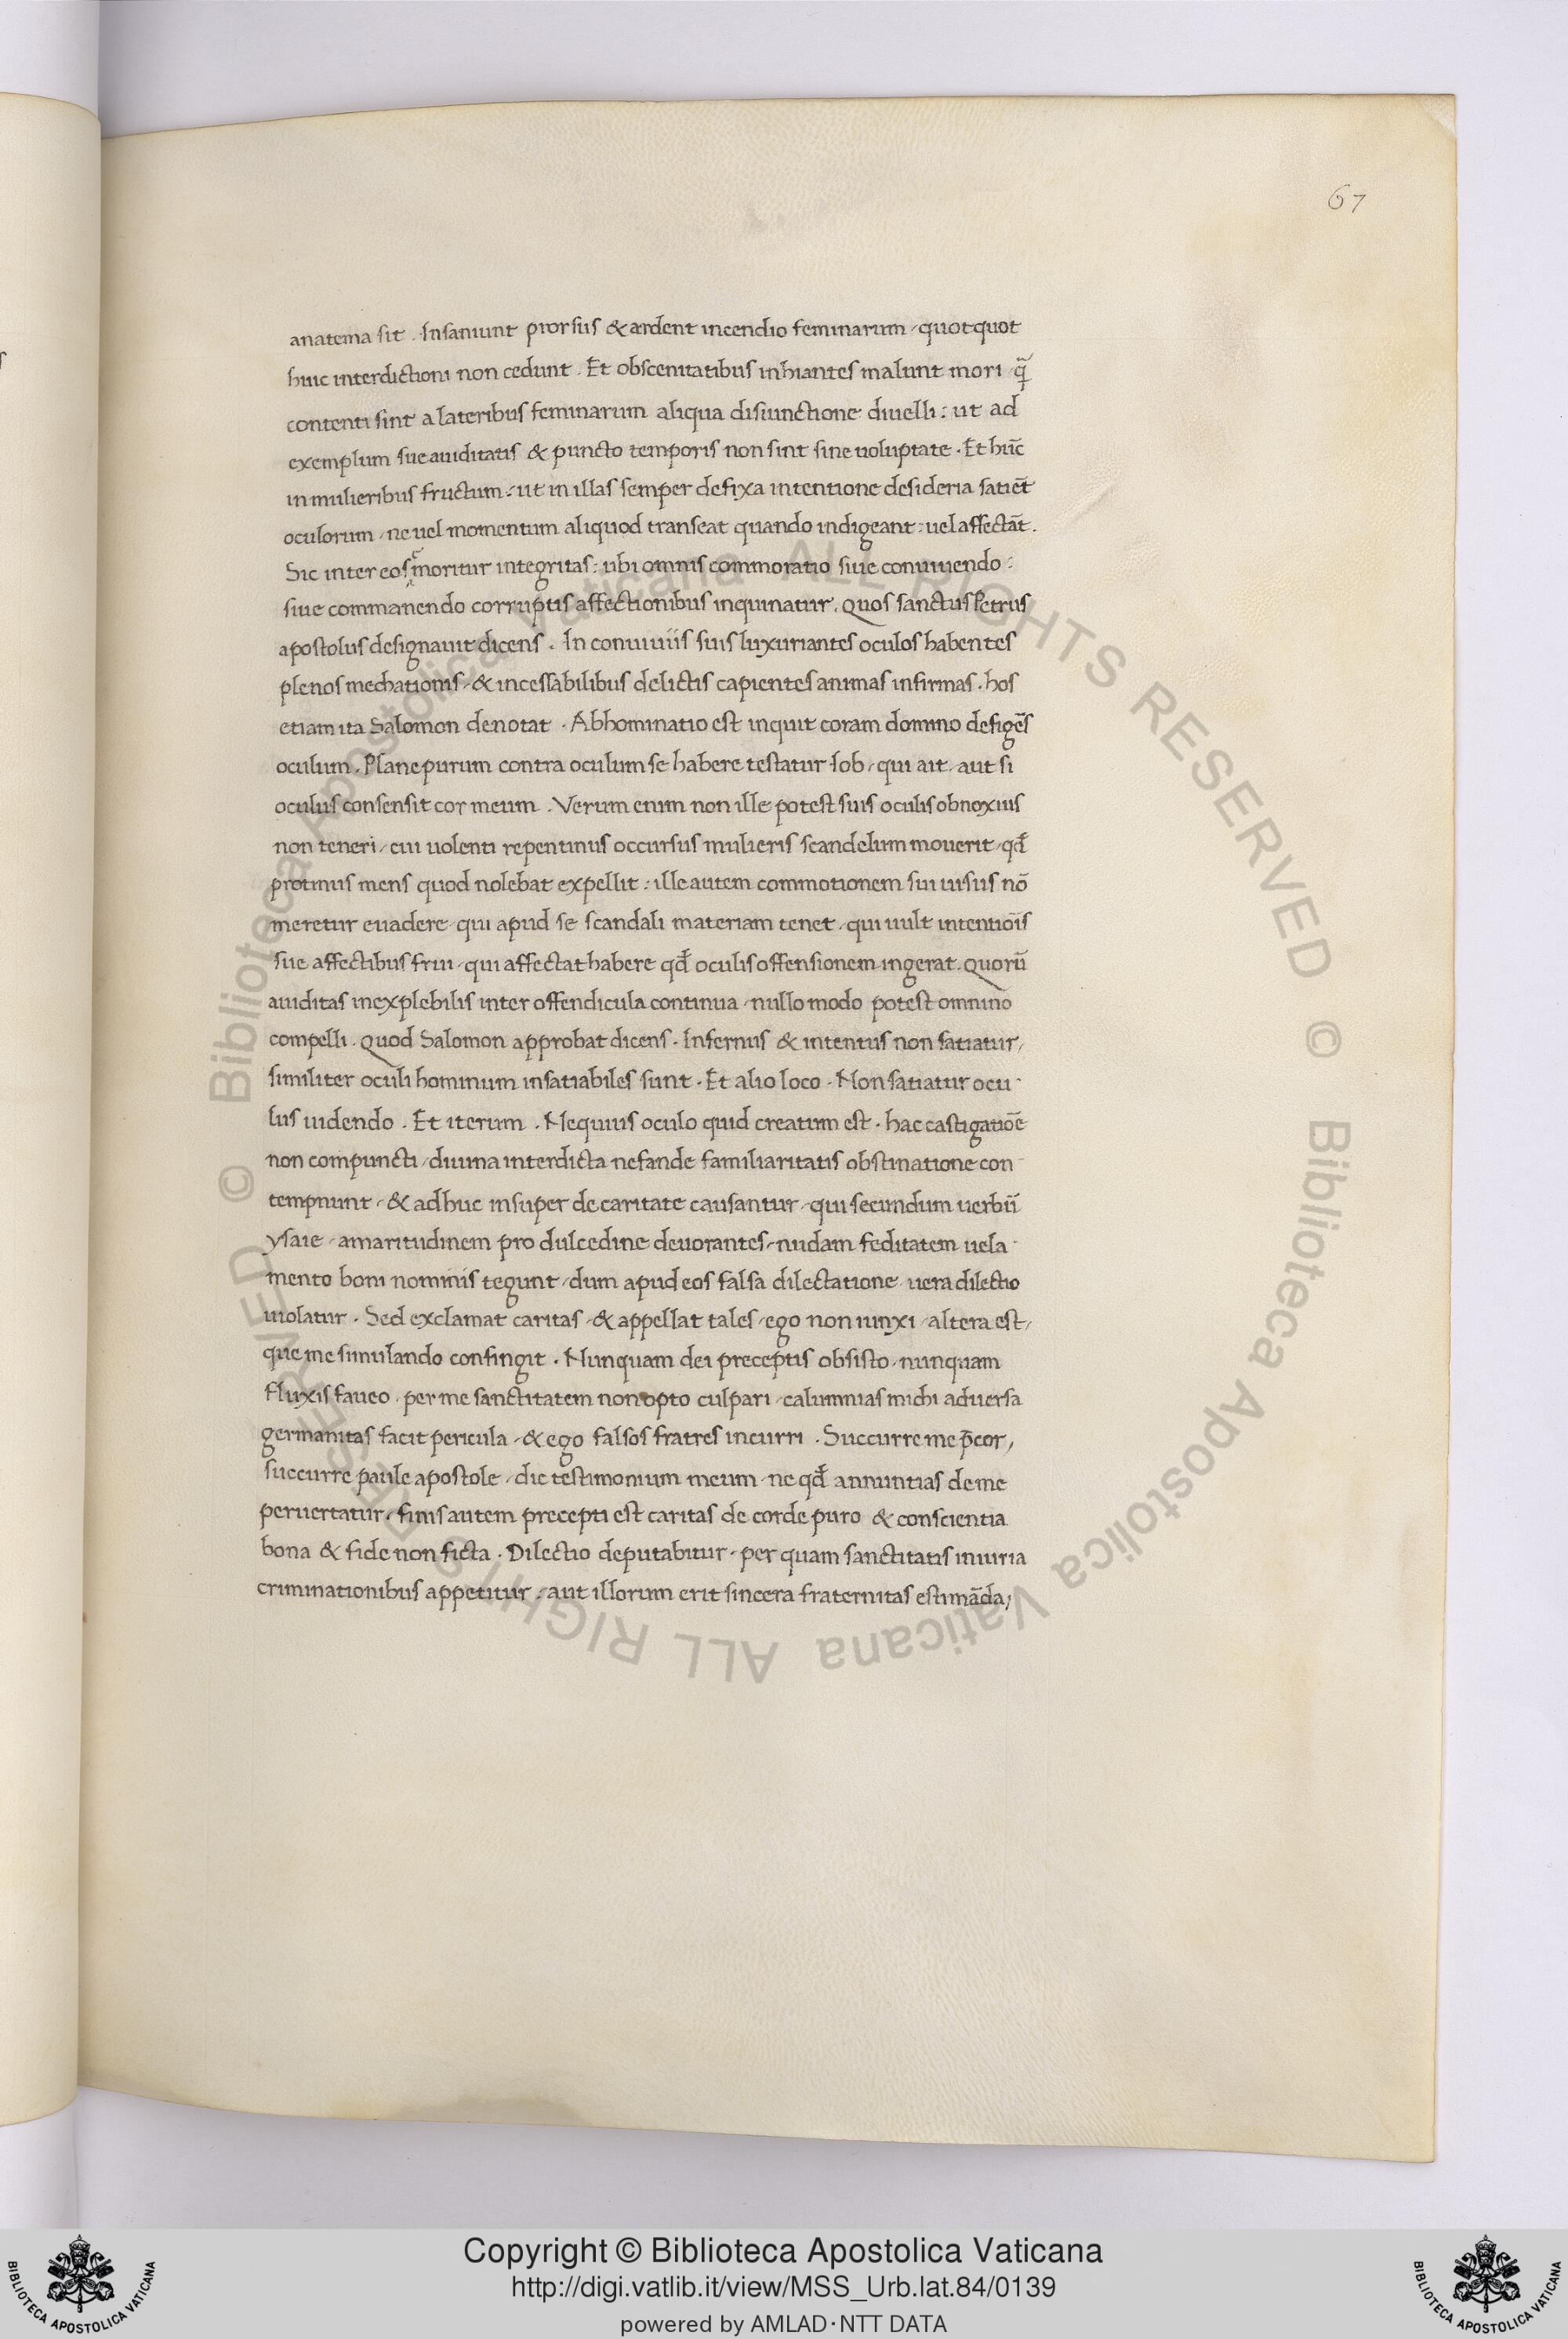 67
anatema sit . Insaniunt prorsus & ardent incendio feminarum / quotquot
huic interdictioni non cedunt . Et obscenitatibus inhiantes malunt mori / q̃
contenti sint a lateribus feminarum aliqua disiunctione diuelli : ut ad
exemplum sue auiditatis & puncto temporis non sint sine uoluptate . Et hūc
in mulieribus fructum : ut in illas semper defixa intentione desideria satiēt
oculorum / ne uel momentum aliquod transeat quando indigeant : uel affectāt .
Sic inter eos moritur integritas : ubi omnis commoratio siue conuiuendo :
siue commanendo corruptis affectionibus inquinatur . Quos sanctus Petrus
apostolus designauit dicens . In conuiuiis suis luxuriantes oculos habentes
plenos mechationis / & incessabilibus delictis capientes animas infirmas . hos
etiam ita Salomon denotat . Abhominatio est inquit coram domino defigēs
oculum . Plane purum contra oculum se habere testatur Iob / qui ait / aut si
oculus consensit cor meum . Verum enim non ille potest suis oculis obnoxius
non teneri / cui uolenti repentinus occursus mulieris scandelum mouerit / qđ
protinus mens quod nolebat expellit : ille autem commotionem sui uisus nō
meretur euadere / qui apud se scandali materiam tenet / qui uult intentiōis
sue affectibus frui / qui affectat habere qđ oculis offensionem ingerat . Quorū
auiditas inexplebilis inter offendicula continua / nullo modo potest omnino
compelli . Quod Salomon approbat dicens . Infernus & intentus non satiatur /
similiter oculi hominum insatiabiles sunt . Et alio loco . Non satiatur ocu-
lus uidendo . Et iterum . Nequius oculo quid creatum est . hac castigatiōe
non compuncti / diuina interdicta nefande familiaritatis obstinatione con-
tempnunt / & adhuc insuper de caritate causantur / qui secundum uerbū
ysaie / amaritudinem pro dulcedine deuorantes / nudam feditatem uela-
mento boni nominis tegunt / dum apud eos falsa dilectatione uera dilectio
uiolatur . Sed exclamat caritas / & appellat tales / ego non iunxi / altera est /
que me simulando confingit . Nunquam dei preceptis obsisto / nunquam
fluxis faueo . per me sanctitatem non opto culpari / calumnias michi aduersa
germanitas facit pericula / & ego falsos fratres incurri . Succurre me p̄cor /
succurre paule apostole / dic testimonium meum / ne qđ annuntias de me
peruertatur . finis autem precepti est caritas de corde puro & conscientia
bona & fide non ficta . Dilectio deputabitur / per quam sanctitatis iniuria
criminationibus appetitur : aut illorum erit sincera fraternitas estimāda /
© Biblioteca Apostolica Vaticana ALL RIGHTS RESERVED © Biblioteca Apostolica Vaticana ALL RIGHTS RESERVED
Copyright © Biblioteca Apostolica Vaticana
http://digi.vatlib.it/view/MSS_Urb.lat.84/0139
powered by AMLAD·NTT DATA
BIBLIOTECA APOSTOLICA VATICANA
BIBLIOTECA APOSTOLICA VATICANA